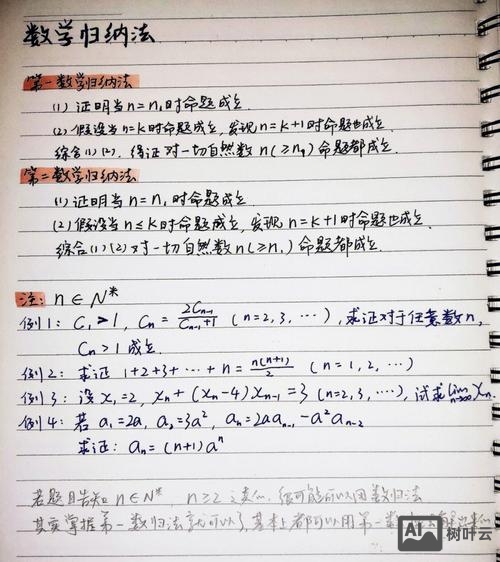 数学归纳法
第一数学归纳法
(1) 证明当n=n₁时命题成立.
(2) 假设当n=k时命题成立, 发现n=k+1时命题也成立.
综合(1)(2), 得证对一切自然数n(≥n₁)命题都成立.
第二数学归纳法
(1) 证明当n=n₁时命题成立.
(2) 假设当n≤k时命题成立, 发现n=k+1时命题也成立.
综合(1)(2)对一切自然数n(≥n₁)命题都成立.
注: n∈N*
例1: C₁>1, Cₙ=2Cₙ₋₁/(Cₙ₋₁+1) (n=2,3,…), 求证对于任意数n,
Cₙ>1成立.
例2: 求证 1+2+3+…+n=n(n+1)/2 (n=1,2,…)
例3: 设x₁=2, xₙ+(xₙ-4)xₙ₋₁=3 (n=2,3,…), 试求lim n→∞ xₙ.
例4: 若a₁=2a, a₂=3a², aₙ=2aaₙ₋₁-a²aₙ₋₂
求证: aₙ=(n+1)aⁿ
若题目告知n∈N*, n≥2之类似, 很可能可以用数归法
其实掌握第一数归法就可以了, 基本上都可以用第一数
AI 树叶云